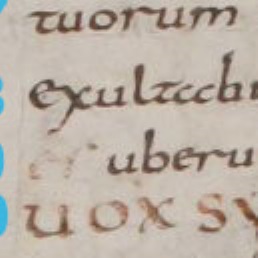 tuorum
exultab
uberu
UOX SY